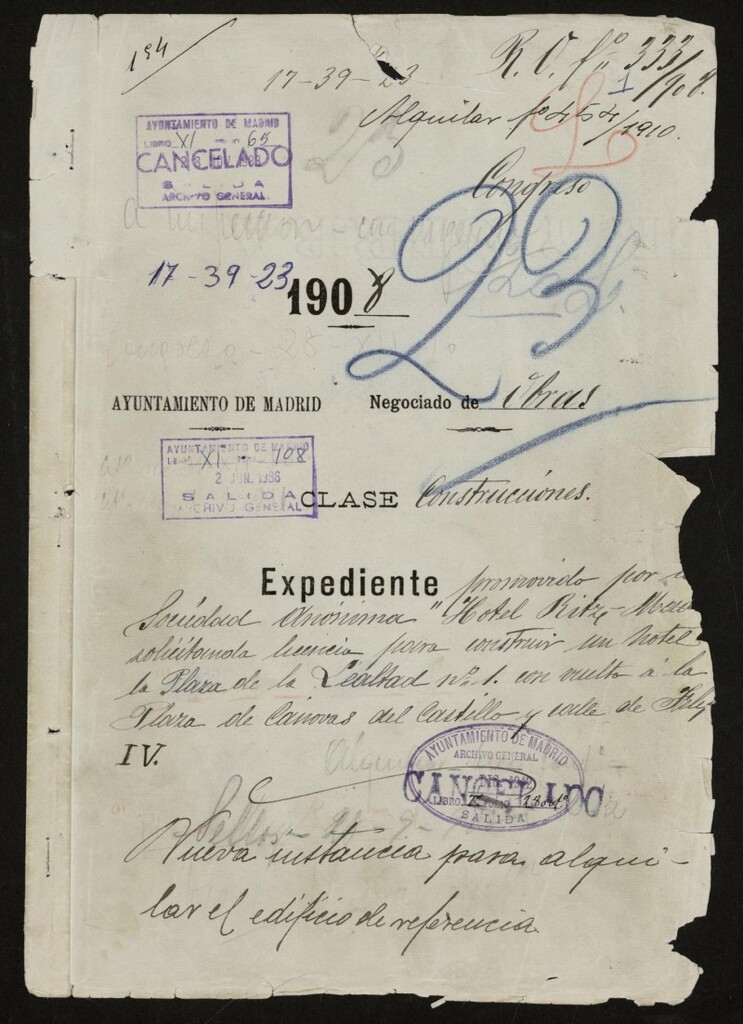 194
17-39-23
R. O. fº 333/908.
1
Alquilar fº 454/1910.
AYUNTAMIENTO DE MADRID
LIBRO XI FOLIO 65
CANCELADO
SALIDA
ARCHIVO GENERAL
23
Congreso
17-39-23
1908
23
AYUNTAMIENTO DE MADRID Negociado de Obras
AYUNTAMIENTO DE MADRID
LIBRO XI FOLIO 108
2 JUN. 1986
SALIDA
ARCHIVO GENERAL
CLASE Construcciones.
Expediente promovido por
Sociedad Anónima "Hotel Ritz-
solicitando licencia para construir un hotel
la Plaza de la Lealtad nº 1. con vuelta á la
Plaza de Canovas del Castillo y calle de Felip
IV.
AYUNTAMIENTO DE MADRID
ARCHIVO GENERAL
CANCELADO
LIBRO
SALIDA
Nueva instancia para alqui-
lar el edificio de referencia.